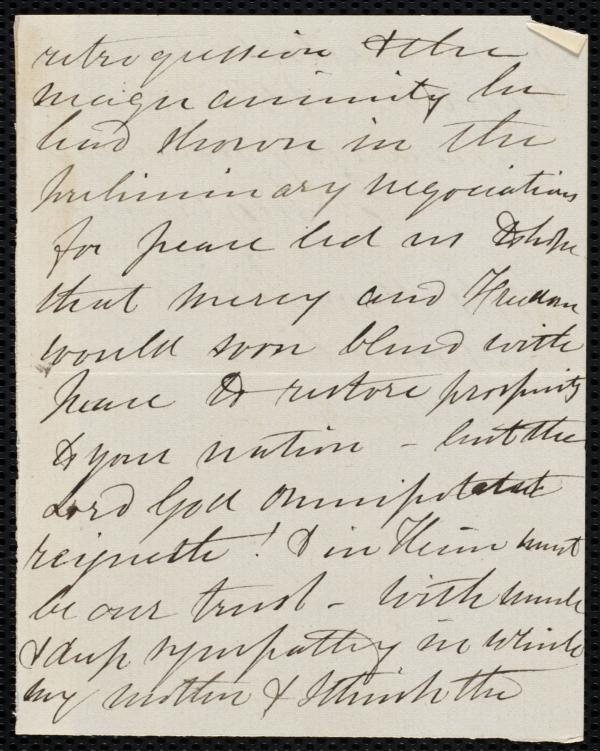 retrogression & the
magnanimity he
had shown in the
preliminary negociations
for peace led us to hope
that mercy and Freedom
would soon blend with
Peace to restore prosperity
to your nation - but the
Lord God Omnipotent
reigneth! & in Him must
be our trust - With much
& deep sympathy in which
my mother & I think the